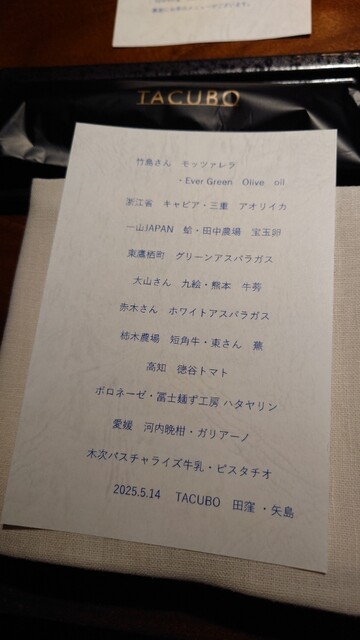 TACUBO
竹島さん モッツァレラ
・Ever Green Olive oil
浙江省 キャビア・三重 アオリイカ
一山JAPAN 蛤・田中農場 宝玉卵
東鷹栖町 グリーンアスパラガス
大山さん 九絵・熊本 牛蒡
赤木さん ホワイトアスパラガス
柿木農場 短角牛・東さん 蕪
高知 徳谷トマト
ボロネーゼ・冨士麺ず工房 ハタヤリン
愛媛 河内晩柑・ガリアーノ
木次パスチャライズ牛乳・ピスタチオ
2025.5.14 TACUBO 田窪・矢島